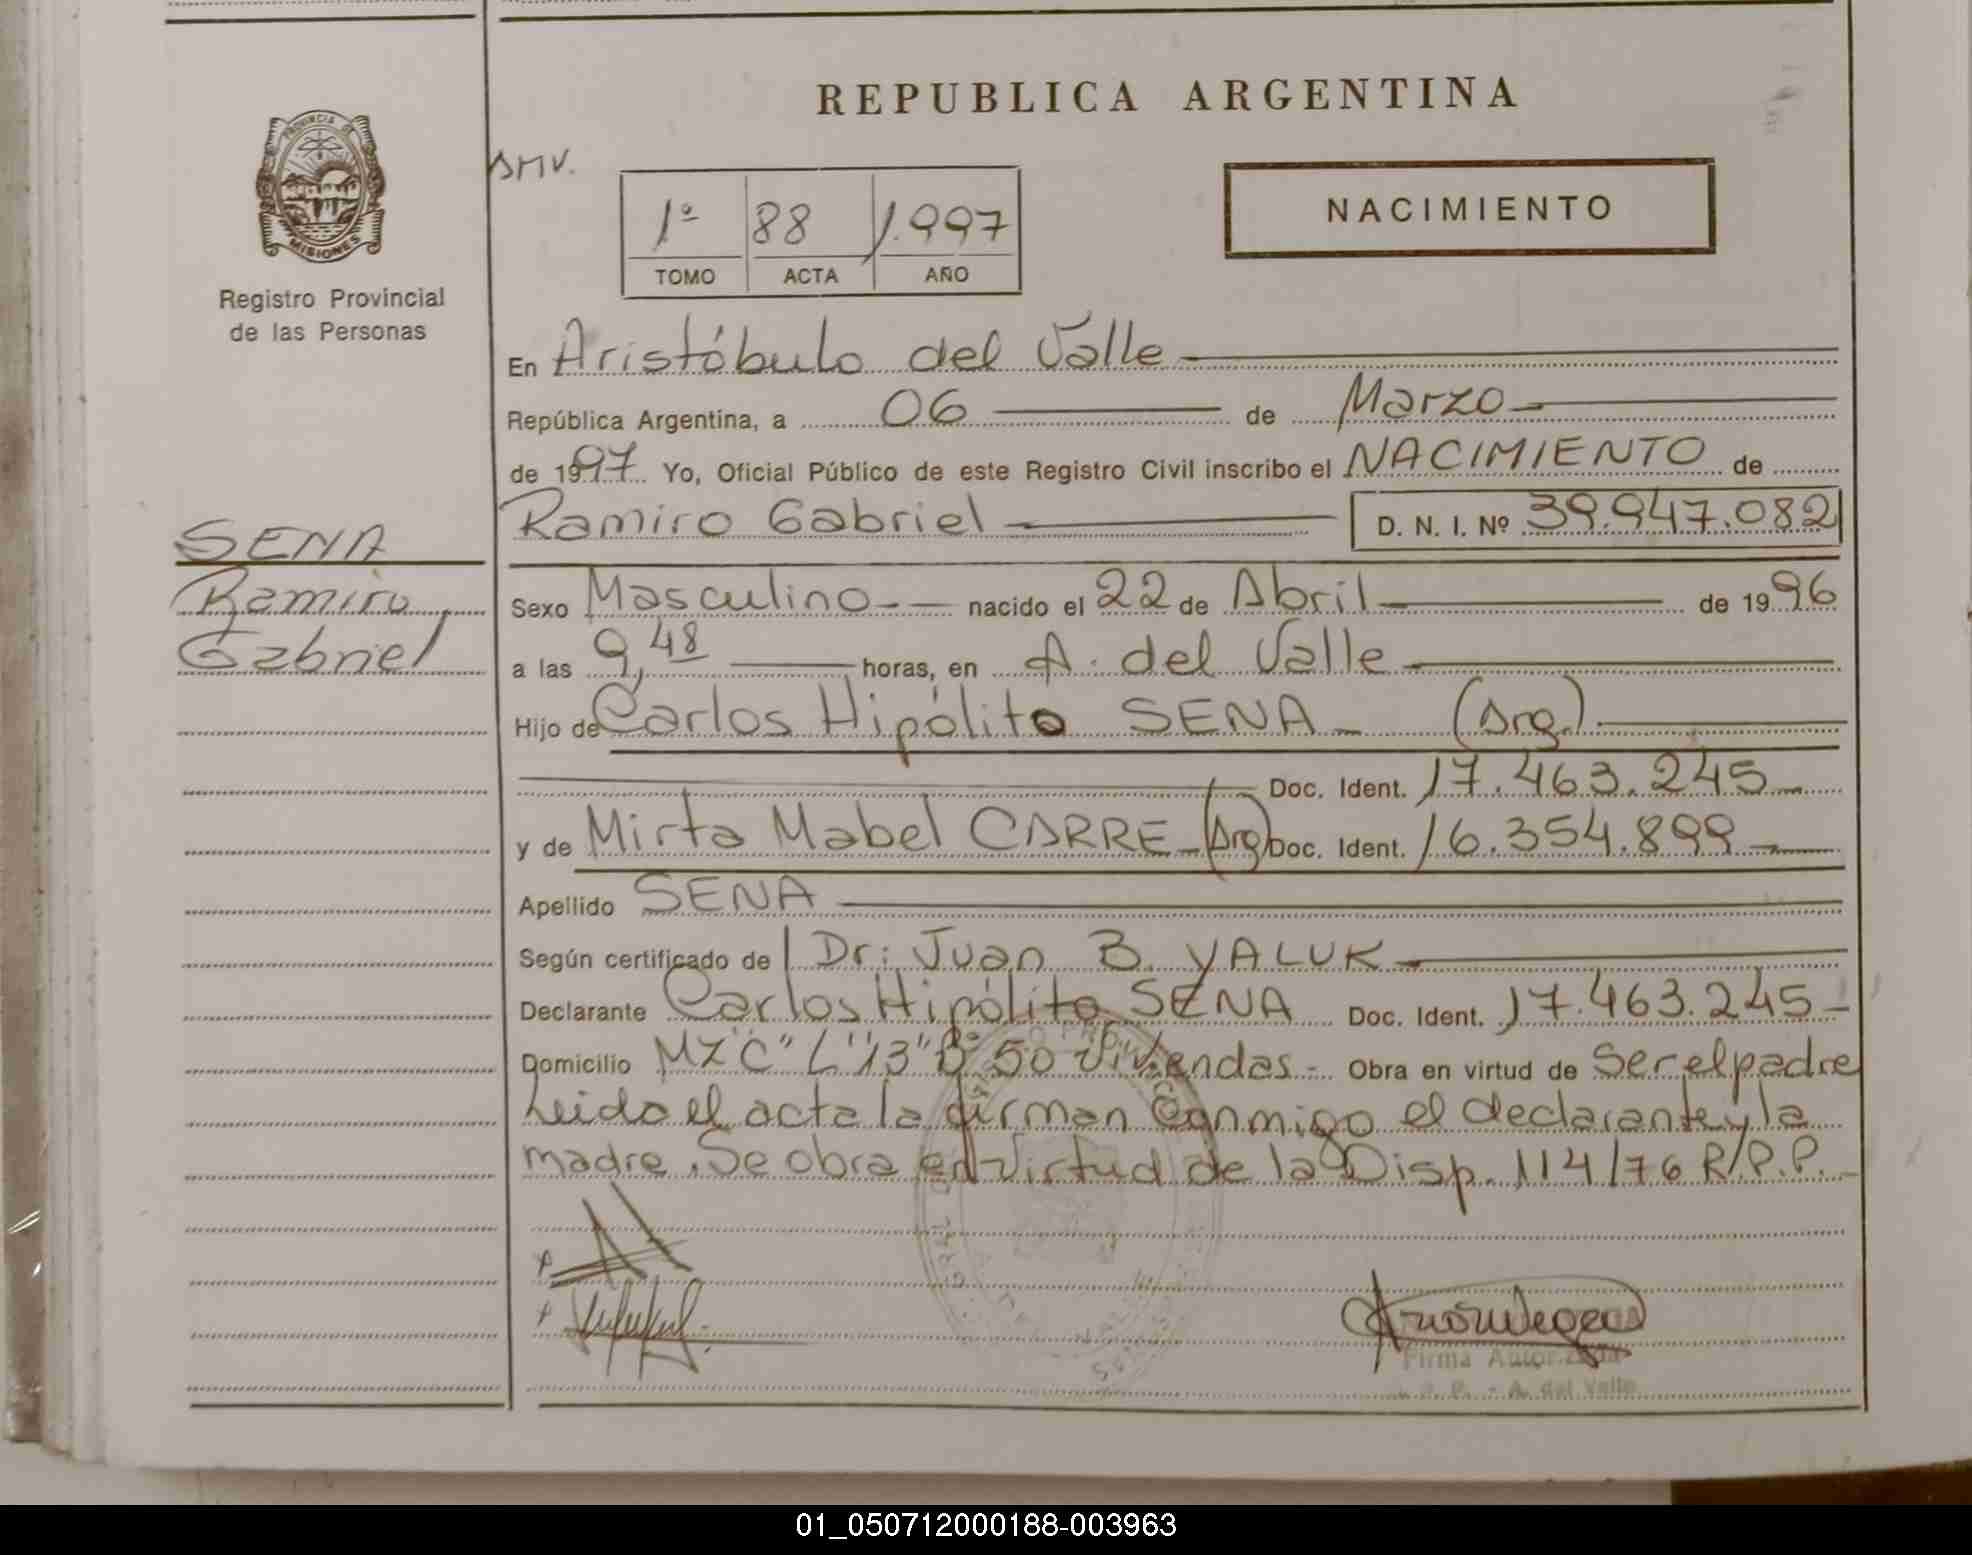 REPUBLICA ARGENTINA
PROVINCIA DE
MISIONES
Registro Provincial
de las Personas
1º 88 1.997
TOMO ACTA AÑO
NACIMIENTO
En Aristóbulo del Valle
República Argentina, a 06 de Marzo
de 1997 Yo, Oficial Público de este Registro Civil inscribo el NACIMIENTO de
Ramiro Gabriel D. N. I. Nº 39.947.082
SENA
Ramiro
Gabriel
Sexo Masculino nacido el 22 de Abril de 1996
a las 9,48 horas, en A. del Valle
Hijo de Carlos Hipólito SENA (Arg.)
Doc. Ident. 17.463.245
y de Mirta Mabel CARRE (Arg) Doc. Ident. 16.354.899
Apellido SENA
Según certificado de Dr: Juan B. YALUK
Declarante Carlos Hipólito SENA Doc. Ident. 17.463.245
Domicilio MZ "C" L "13" Bº 50 Viviendas Obra en virtud de Ser el padre
Leido el acta la firman conmigo el declarante y la
madre. Se obra en virtud de la Disp. 114/76 R.P.P.
Firma Autorizada
A. del Valle
01_050712000188-003963